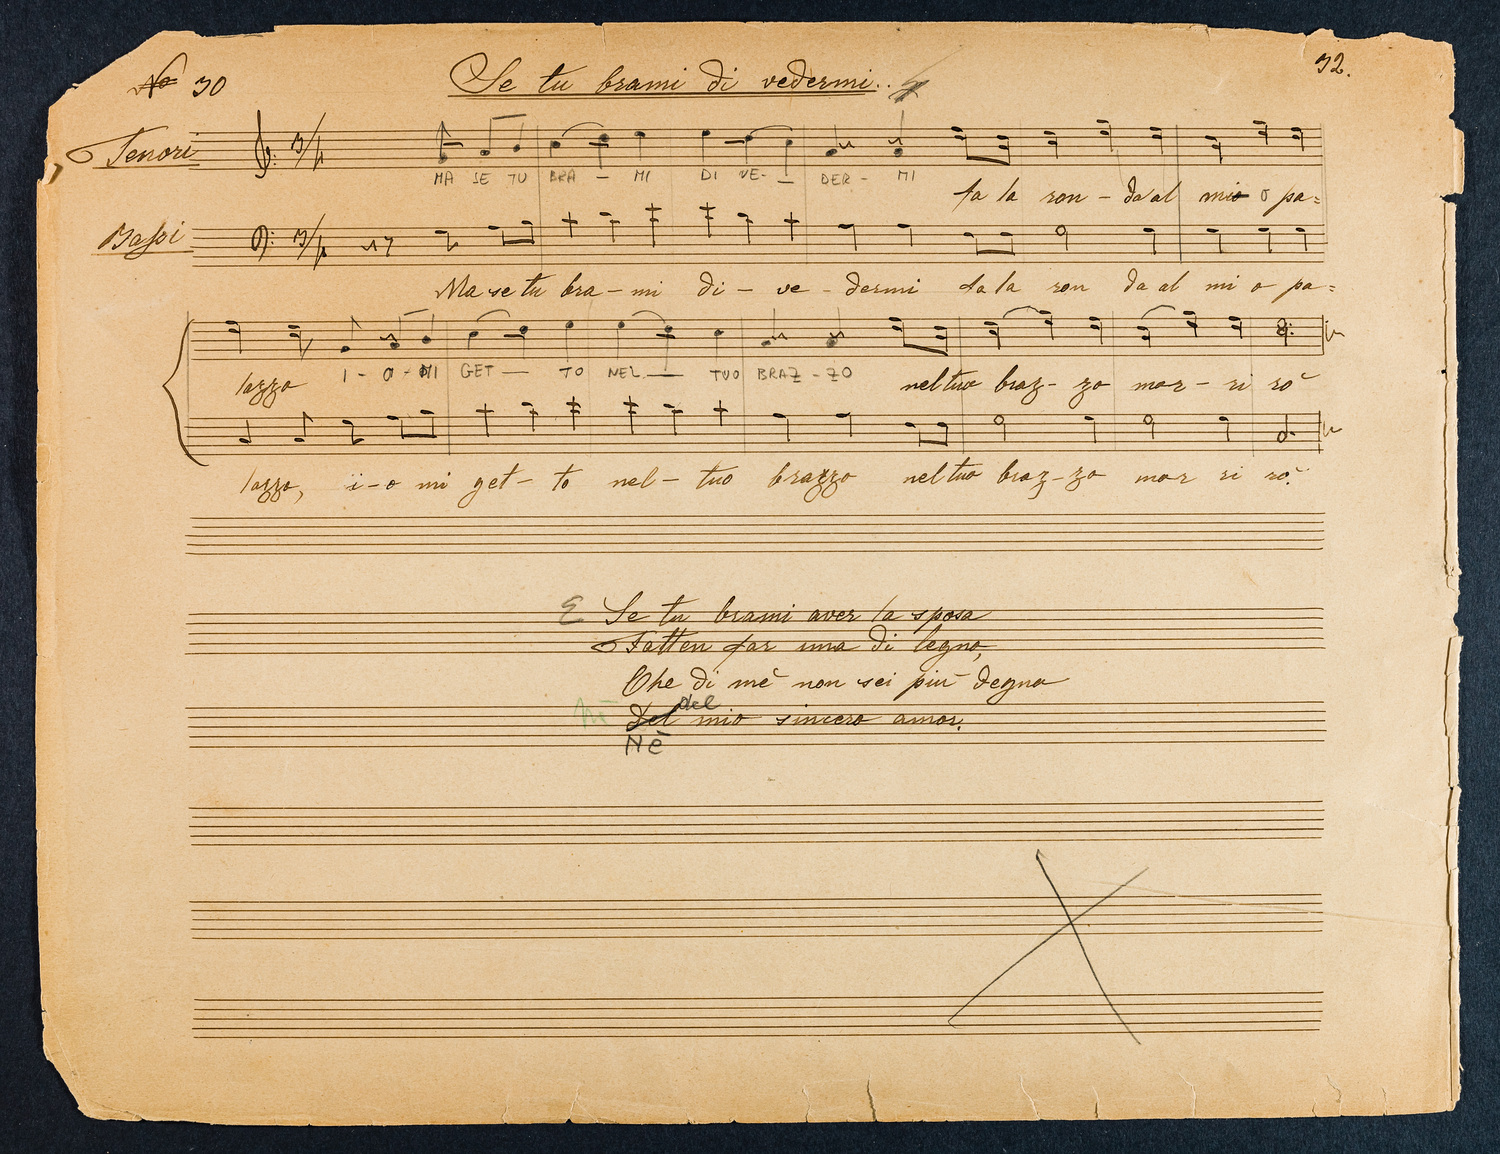 No 30 Se tu brami di vedermi.. 32.
Tenori
MA SE TU BRA – MI DI VE- – DER - MI
fa la ron – da al mio o pa=
Bassi
Ma se tu bra – mi di – ve – dermi fa la ron da al mi o pa=
I - O - MI GET — TO NEL — TUO BRAZ - ZO
lazzo nel tuo braz- zo mor – ri rò
lazzo, i-o mi get – to nel – tuo brazzo nel tuo braz-zo mor ri rò.
E Se tu brami aver la sposa
Fatten far una di legno,
Che di mè non sei più degno
Nè Del del mio sincero amor.
Nè